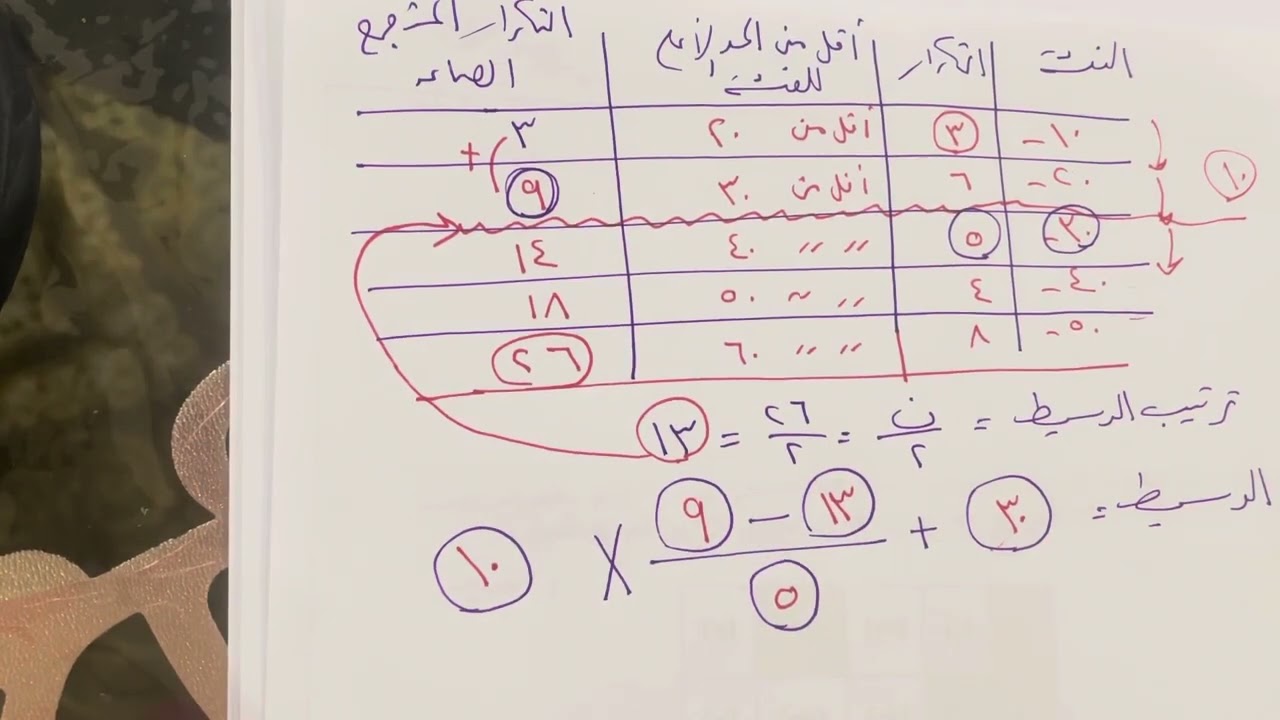 الفئة التكرار أقل من الحد الأعلى للفئة التكرار المتجمع الصاعد
١٠- ٣ أقل من ٢٠ ٣ +
٢٠- ٦ أقل من ٣٠ ٩ ١٠
٣٠- ٥〃 〃 ٤٠ ١٤
٤٠- ٤ 〃 ~ ٥٠ ١٨
٥٠- ٨ 〃 〃 ٦٠ ٢٦
ترتيب الوسيط = ن/٢ = ٢٦/٢ = ١٣
الوسيط = ٣٠ + (١٣ − ٩)/٥ × ١٠